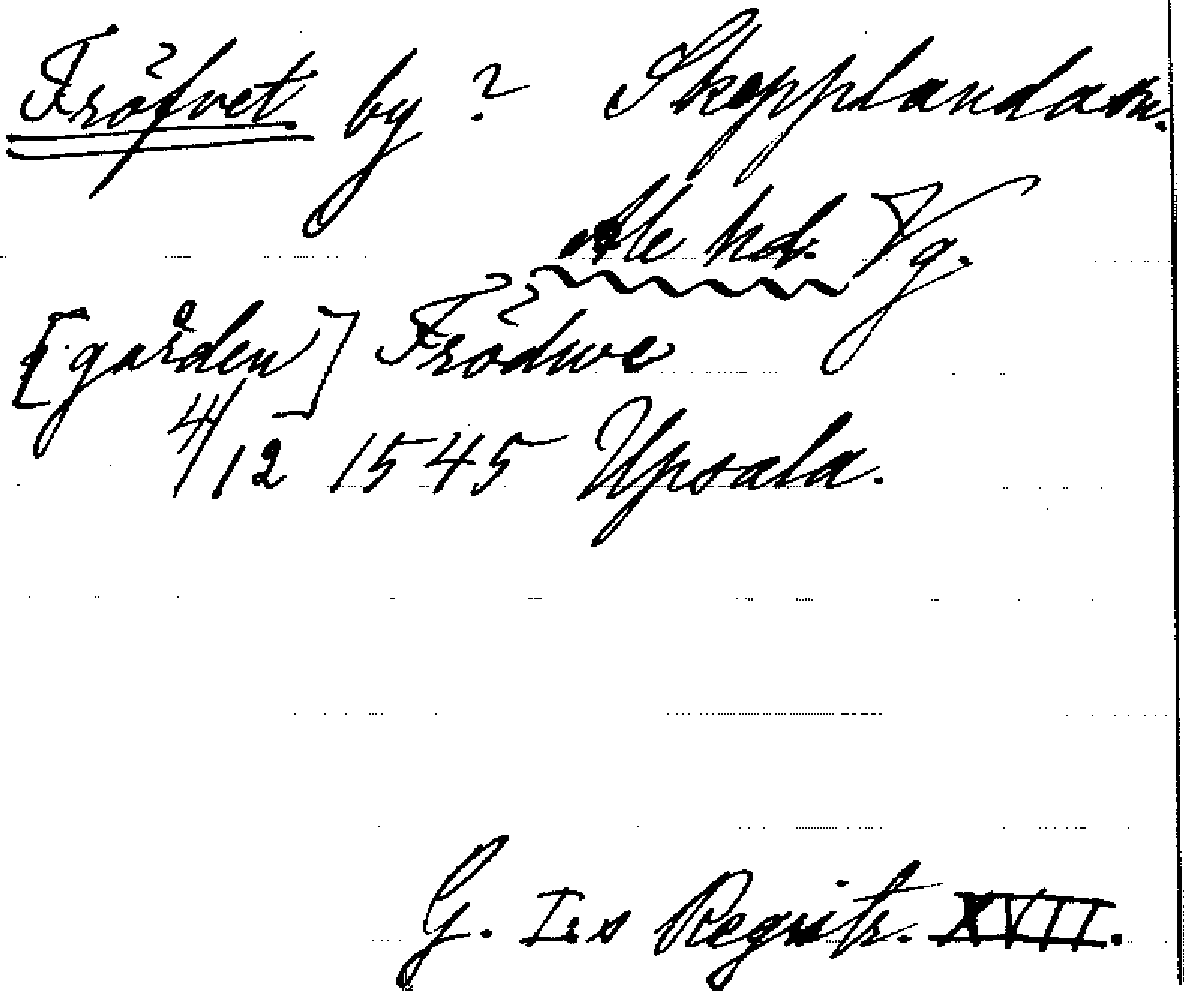 Fröfvet by? Skepplanda sn.
Ale hd. Vg.
[gården] Frödwe
4/12 1545 Upsala.
G. I:s Registr. XVII.